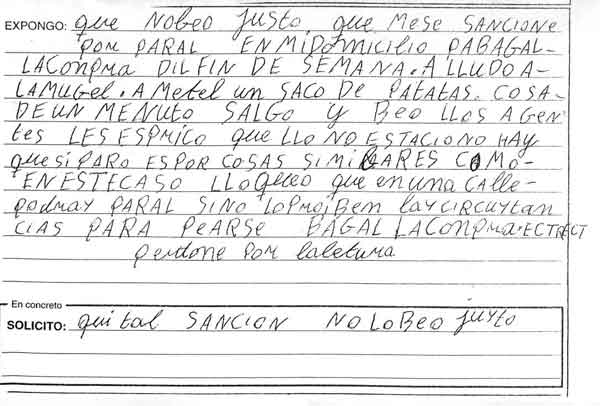 EXPONGO: que NOBEO JUSTO que MESE SANCIONE
POR PARAL EN MI DOMICILIO PABAGAL-
LACONPRA DIL FIN DE SEMANA. A LLUDO A-
LAMUGEL. A METEL UN SACO DE PATATAS. COSA-
DE UN MENUTO SALGO Y BEO LLOS AGEN
tes LES ESPRICO que LLO NO ESTACIONO HAY
que SI PARO ES POR COSAS SIMILARES COMO-
EN ESTE CASO LLO QUEO que en una CALLE-
podray PARAL SI NO LO PROIBEN LAY CIRCUYTAN
CIAS PARA PEARSE BAGAL LACONPRA. ECTRECT
perdone por laletura
En concreto
SOLICITO: quital SANCION NO LO BEO JUYTO